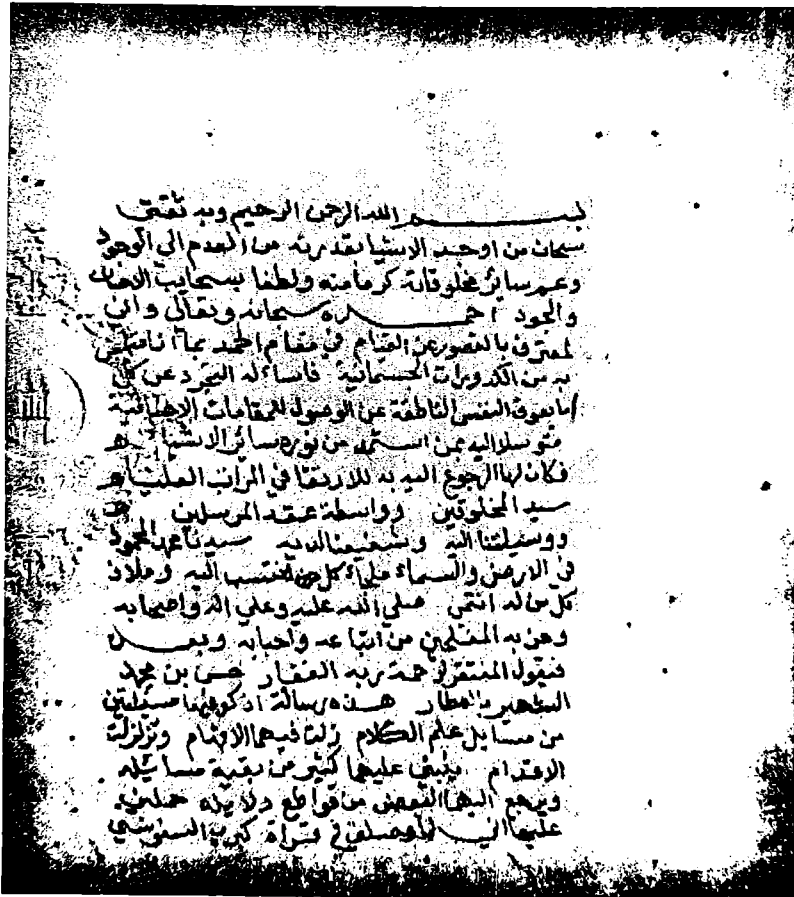 بسم الله الرحمن الرحيم وبه ثقتي
سبحان من اوجد الاشيا بقدرته من العدم الي الوجود
وعم سائر مخلوقاته كرما منه ولطفا بسحايب الاحسان
والجود احمده سبحانه وتعالي واني
لمعترف بالقصور عن القيام في مقام الحمد بما
به من الكدورات الجسمانية فاساله التجرد عن كل
ما يعوق النفس الناطقة عن الوصول للمقامات
متوسلا اليه بمن استمد من نوره سائر الاشيا
فكان لها الرجوع اليه به للارتقا في المراتب العليا
سيد المخلوقين وواسطة عقد المرسلين
ووسيلتنا اليه وشفيعنا لديه سيدنا محمد المحمود
في الارض والسماء ملجأ كل من انتسب اليه وملاذ
كل من له انتمي صلي الله عليه وعلي اله واصحابه
ومن به المفلحين من اتباعه واحبابه وبعد
فيقول المفتقر لرحمة ربه الغفار حسن بن محمد
الشهير بالعطار هذه رسالة اذكر فيها مسئلتين
من مسايل علم الكلام زلت فيهما الاقدام وتزلزلت
الاقدام ينبني عليهما كثير من بقية مسائله
ويرجع اليهما البعض من قواطع دلايله حملني
عليها اني لما وصلت في قراة كبري السنوسي